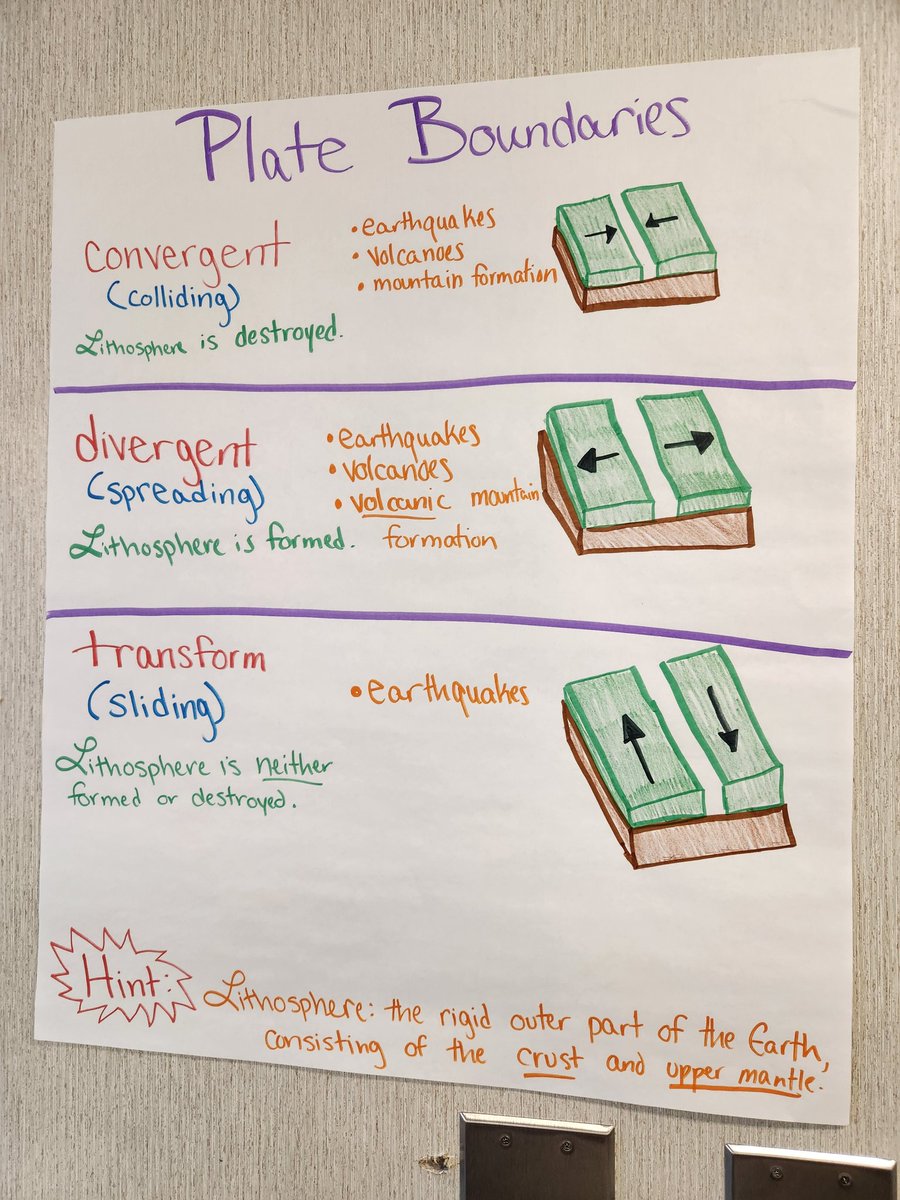 Plate Boundaries
convergent
(colliding)
Lithosphere is destroyed.
• earthquakes
• volcanoes
• mountain formation
divergent
(spreading)
Lithosphere is formed.
• earthquakes
• volcanoes
• volcanic mountain
formation
transform
(sliding)
Lithosphere is neither
formed or destroyed.
• earthquakes
Hint:
Lithosphere: the rigid outer part of the Earth,
consisting of the crust and upper mantle.